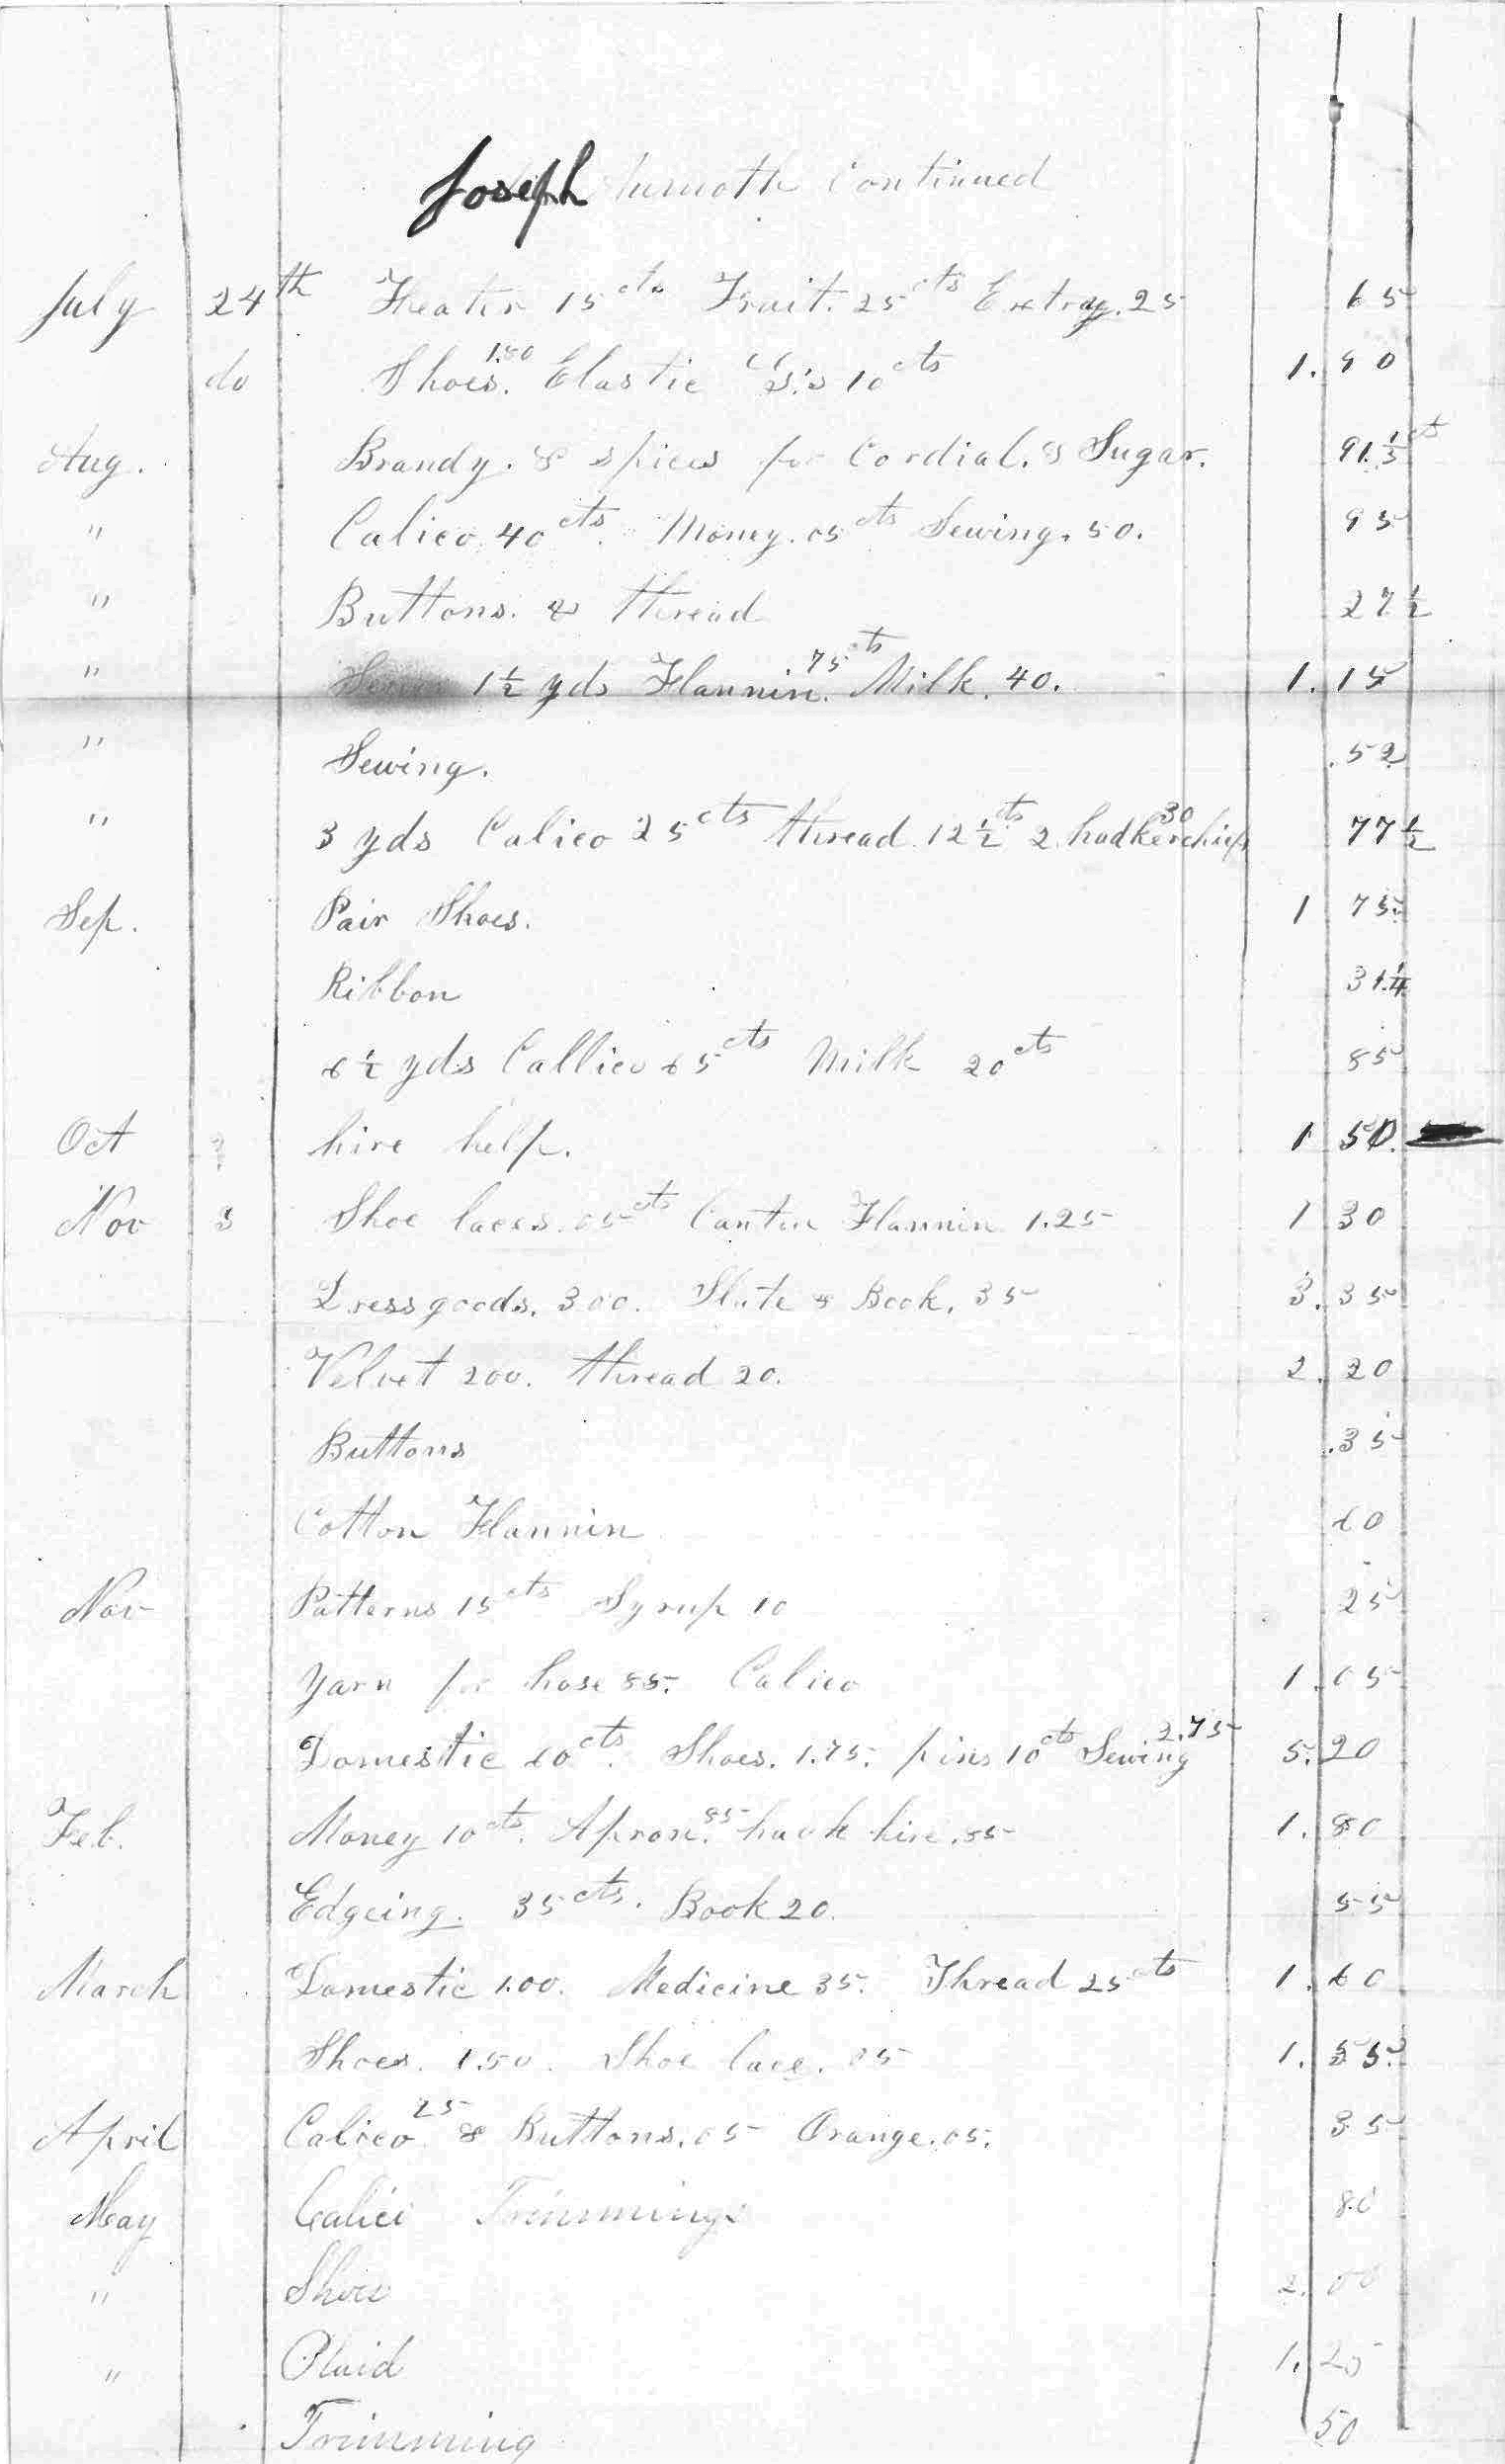 Joseph continued
July 24th Theater 15cts Fruit. 25cts Extray. 25 65
do Shoes. 1.80 Elastic 10cts 1.90
Aug. Brandy. & spices for Cordial. & Sugar. 91.½cts
" Calico 40cts. Money. 05cts Sewing. 50. 95
" Buttons. & thread 27½
" 1½ yds Flannin. .75cts Milk. 40. 1.15
" Sewing. .52
" 3 yds Calico 25cts thread 12½cts 2 hadkerchiefs 30 77½
Sep. Pair Shoes. 1 75.
Ribbon 31.¼
6½ yds Callico 65cts Milk 20cts 85
Oct hire help. 1 50.
Nov 3 Shoe laces. 05cts Canton Flannin 1.25 1 30
Dress goods. 3.00. Slate & Book. 35 3.35
Velvet 200. thread 20. 2.20
Buttons .35
Cotton Flannin 60
Nov Patterns 15cts Syrup 10 25
Yarn for hose 85. Calico 1.05
Domestic 60cts. Shoes. 1.75. pins 10cts Sewing 2.75 5.20
Feb. Money 10cts. Apron. 85 hack hire. 85 1.80
Edgeing. 35cts. Book 20. 55
March Domestic 1.00. Medicine 35. Thread 25cts 1.60
Shoes. 1.50. Shoe lace. 05 1.55.
April Calico 25 & Buttons. 05 Orange. 05. 35
May Calico Trimmings 80
" Shoes 2.00
" Plaid 1.25
Trimming 50